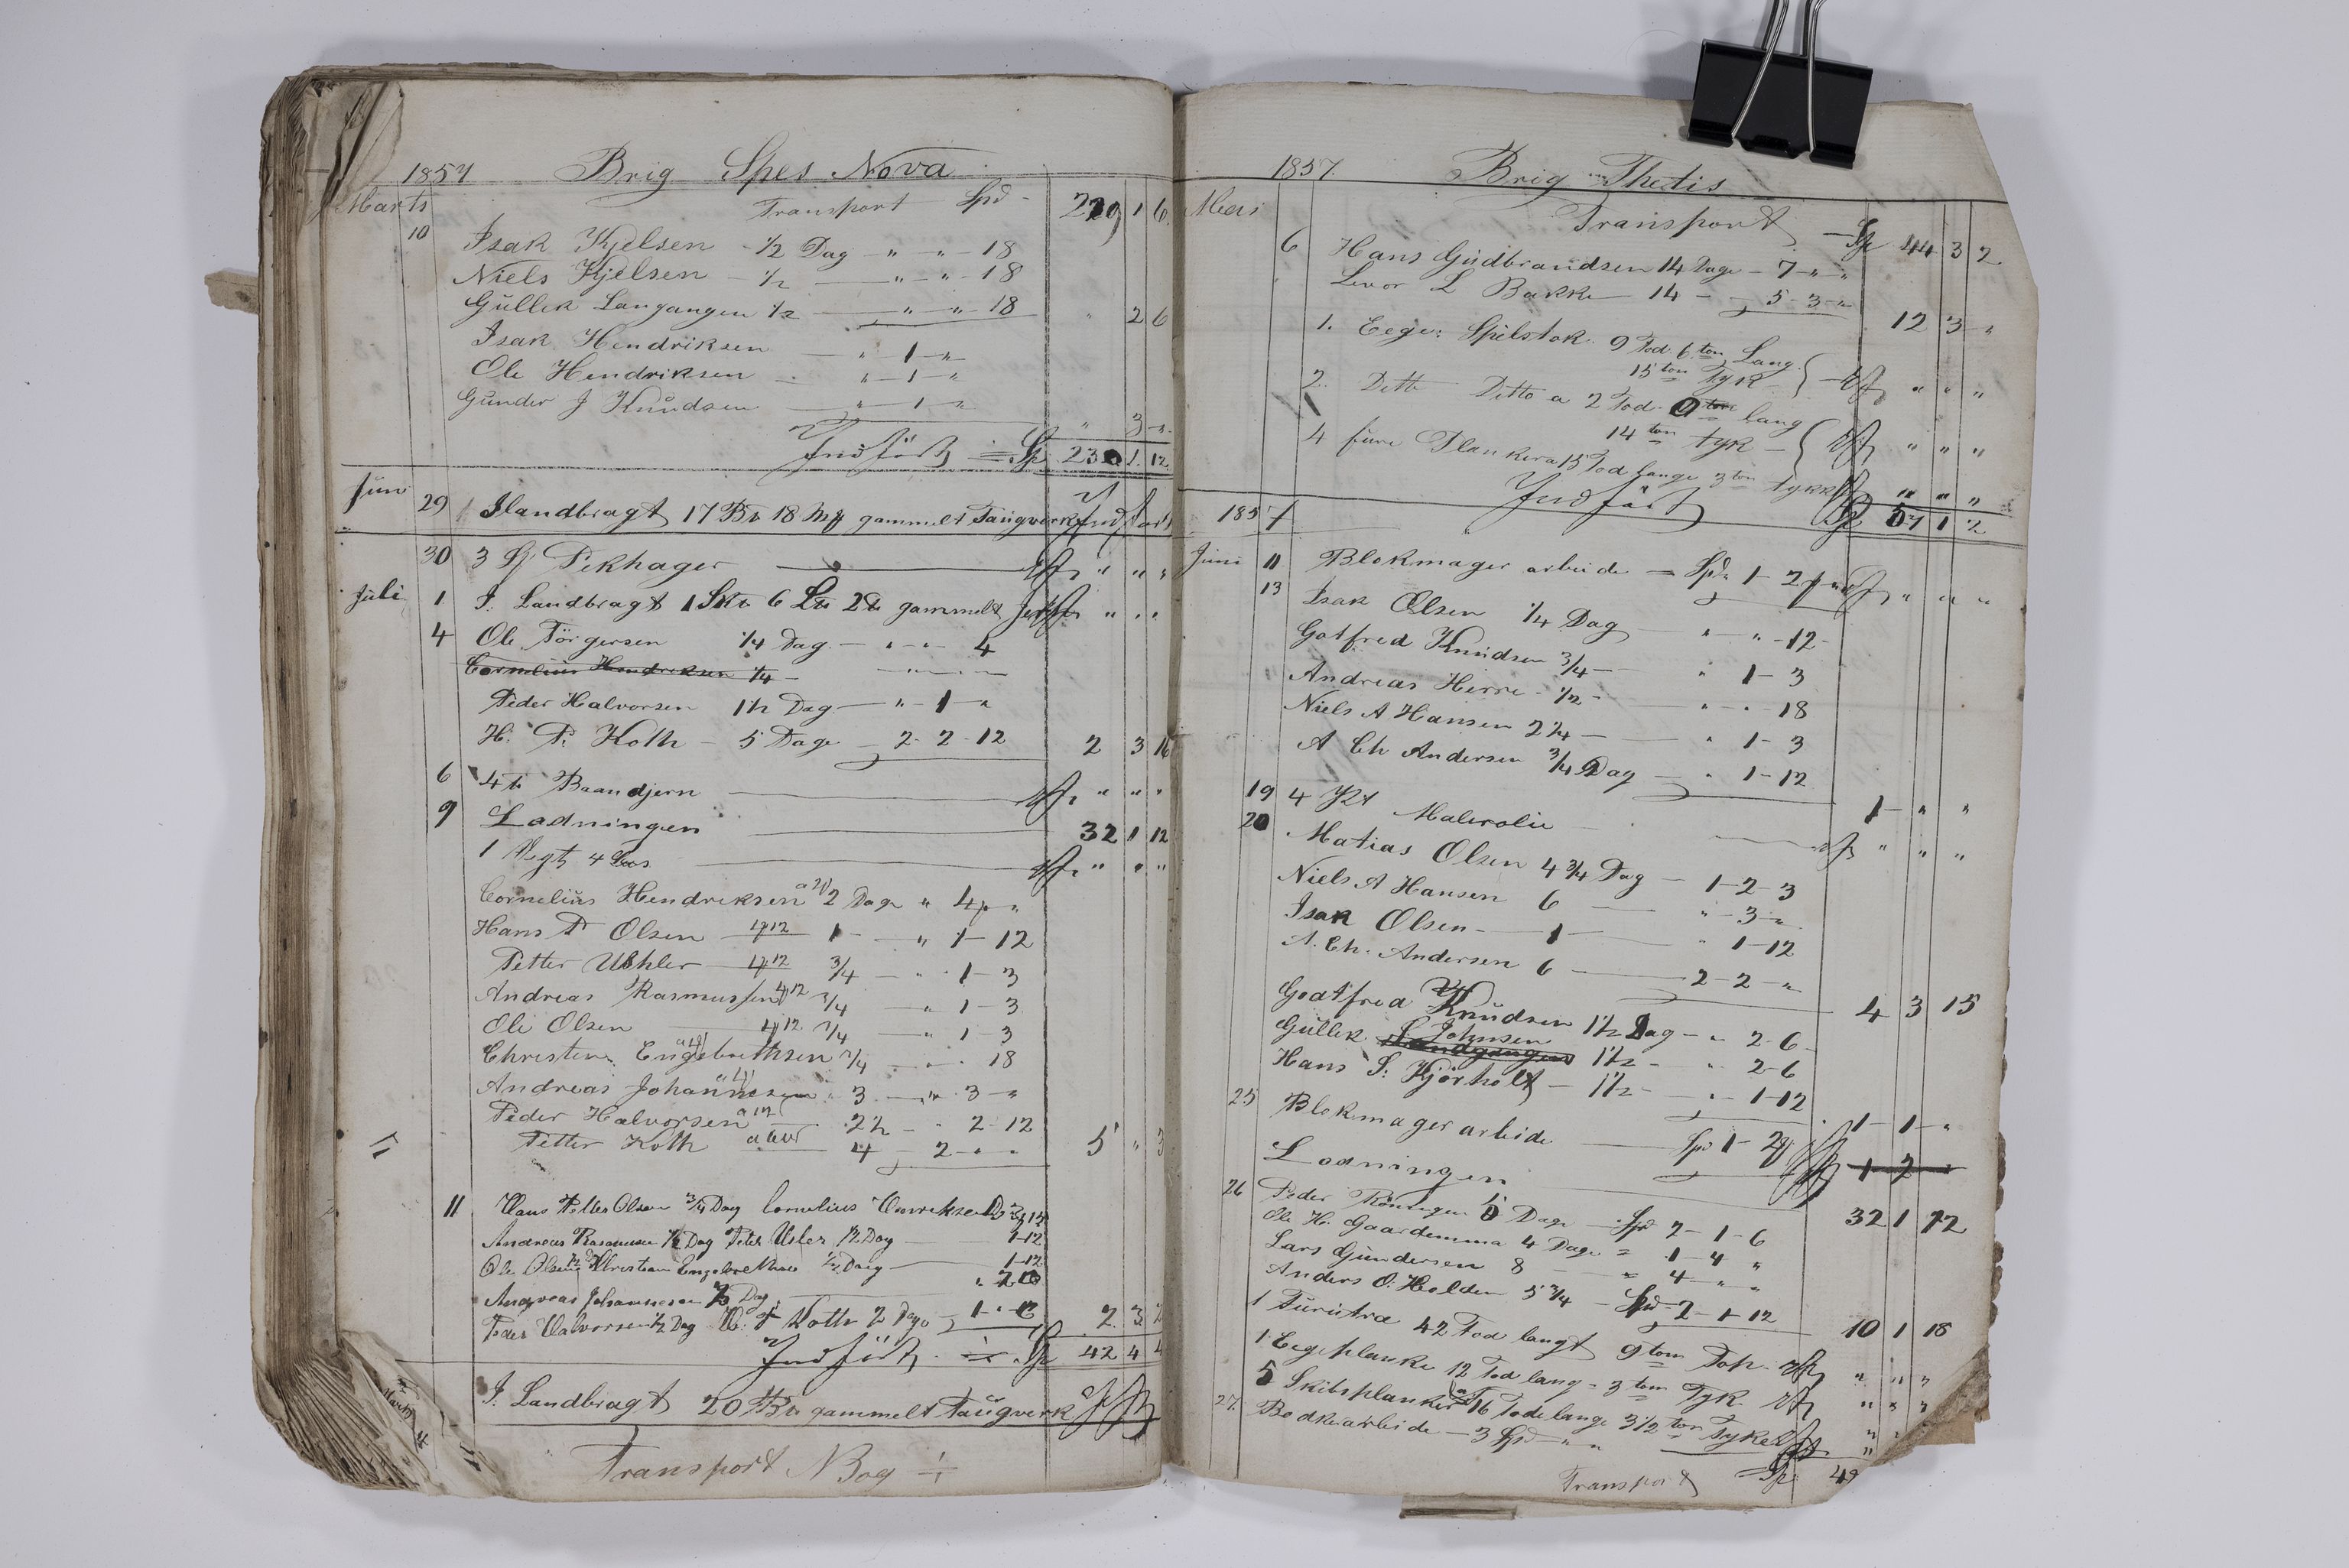 1857 Brig Spes Nova
Marts Transport Spd 229 1 6
10 Isak Kjelsen 1/2 Dag " " 18
Niels Kjelsen 1/2 " " 18
Gullek Langangen 1/2 " " 18 " 2 6
Isak Hendriksen " 1 "
Ole Hendriksen " 1 "
Gunder J Knudsen " 1 " " 3 "
Indfört Sp 230 1 12
Juni 29 Ilandbragt 17 18 gammelt Taugverk Indfört
30 3 Pekhager " " "
Juli 1 I Landbragt 1 6 2 gammelt " " "
4 Ole Törgersen 1/4 Dag " " 4
Cornelius Hendriksen 1/4 " " "
Peder Halvorsen 1 1/2 Dag " 1 "
H. P. Koth 5 Dage 2 2 12 2 3 16
6 4 Baandjern " " "
9 Ladningen 32 1 12
1 4 " " "
Cornelius Hendreksen 2 Dage " 4 "
Hans P Olsen 1 " 1 12
Petter 3/4 " 1 3
Andreas Rasmussen 3/4 " 1 3
Ole Olsen 3/4 " 1 3
Christen Engebrethsen " " 18
Andreas Johannesen 3 " 3 "
Peder Halvorsen 2 1/2 " 2 12
Petter Koth 4 2 " " 5 " 3
11 Hans Petter Olsen 3/4 Dag Cornelius
Andreas Rasmusen 1/2 Dag Peter Usler 1/2 Dag 1-12
Ole Olsen 1/2 Christian 1/2 Dag 1-12
Andreas Johannesen Dag
Peder Halvorsen 1/2 Dag H. P Koth 2 Dage 2 3
Indfört Sp 42 4
I. Landbragt 20 gammelt Taugverk
Transport N Bog
1857. Brig Thetis
Transport Sp 44 3 2
6 Hans Gudbrandsen 14 Dage 7 " "
Levor L Bakke 14 5 3 " 12 3 "
1. Eege Spilstok 9 Fod 6 tom Lang
15 tom Tyk " " "
2. Ditto Ditto a 2 Fod 9 tom lang
14 tom tyk " " "
4 fure Plankera 15 Fod lange 3 tom tykk " " "
Indfört Sp 57 1 2
1857
Juni 11 Blokmager arbeide Spd 1 2 " " "
13 Isak Olsen 1/4 Dag " " 12
Gotfred Knudsen 3/4 " 1 3
Andreas Herre 1/2 " " 18
Niels A Hansen 2 1/4 " 1 3
A Ch Andersen 3/4 Dag " 1 12 1 " "
19 4 Malerolie " " "
20 Matias Olsen 4 3/4 Dag 1 2 3
Niels A Hansen 6 " 3 "
Isak Olsen 1 " 1 12
A. Ch. Andersen 6 2 2 " 4 3 15
Godtfred Knudsen 1 1/2 Dag " 2 6
Gullek L. Johnsen 1 1/2 " 2 6
Hans S. Kjörholt 1 1/2 " 1 12 1 1 "
25 Blokmager arbeide Spd 1 2 1 2 "
Ladningen 32 1 12
26 Peder Röningen 5 Dage Spd 2 1 6
Ole H. Gaardemma 4 Dage 1 4 "
Lars Gundersen 8 4 " "
Anders O. Holden 5 3/4 Spd 2 1 12 10 1 18
1 Furutra 42 Fod langt 9 tom Top " " "
1 Eegeplanke 12 Fod lang 3 tom Tyk " " "
5 Skibsplanker a 16 Fode lange 3 1/2 tom Tyke " "
27 Bødkerarbeide 3 Spd " " "
Transport Sp 49